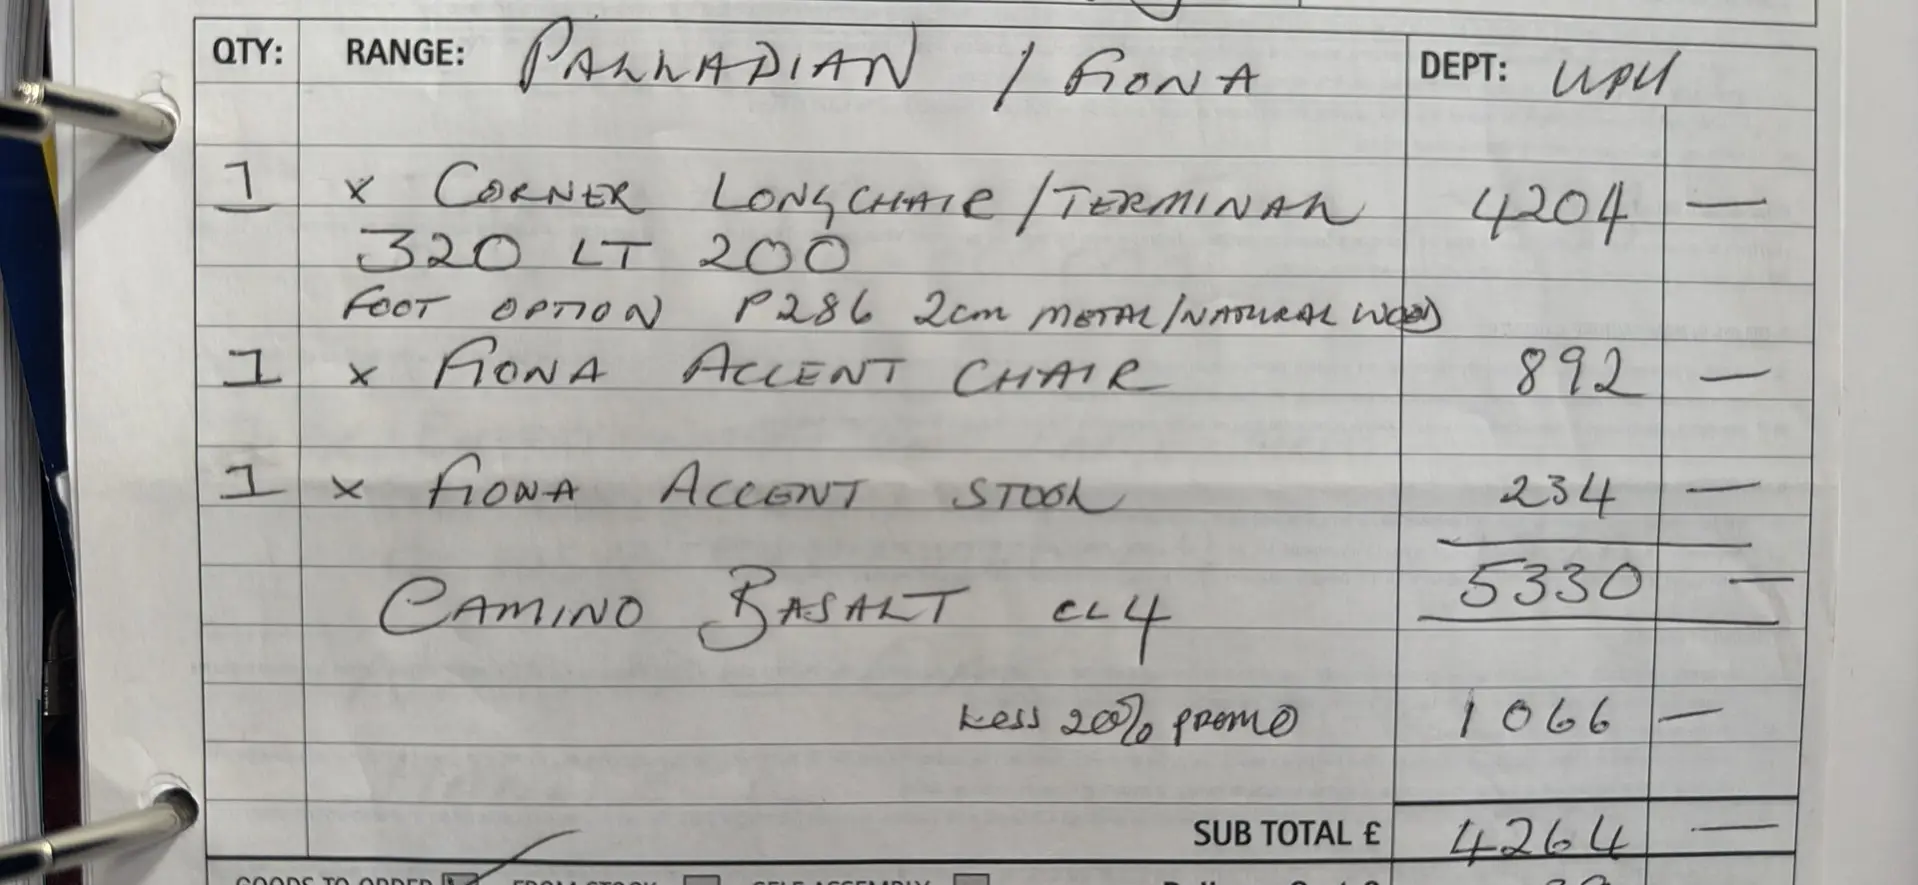 QTY: RANGE: PALLADIAN / FIONA DEPT: UPH
1 x CORNER LONGCHAIR/TERMINAL 4204 —
320 LT 200
FOOT OPTION P286 2cm METAL/NATURAL WOOD
1 x FIONA ACCENT CHAIR 892 —
1 x FIONA ACCENT STOOL 234 —
5330 —
CAMINO BASALT CL4
Less 20% PROMO 1066 —
SUB TOTAL £ 4264 —
GOODS TO ORDER FROM STOCK SELF ASSEMBLY